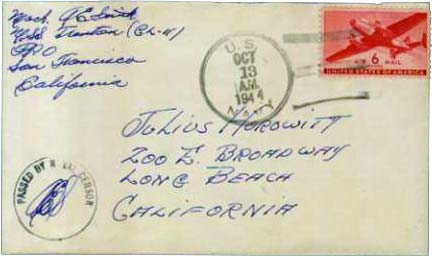 Mach. J E Smith
USS Trenton (CL-11)
FPO
San Francisco
California
U.S.
OCT
13
A.M.
1944
Navy
6
AIR MAIL
UNITED STATES OF AMERICA
Julius Horowitt
200 E. Broadway
Long Beach
California
PASSED BY NAVAL CENSOR